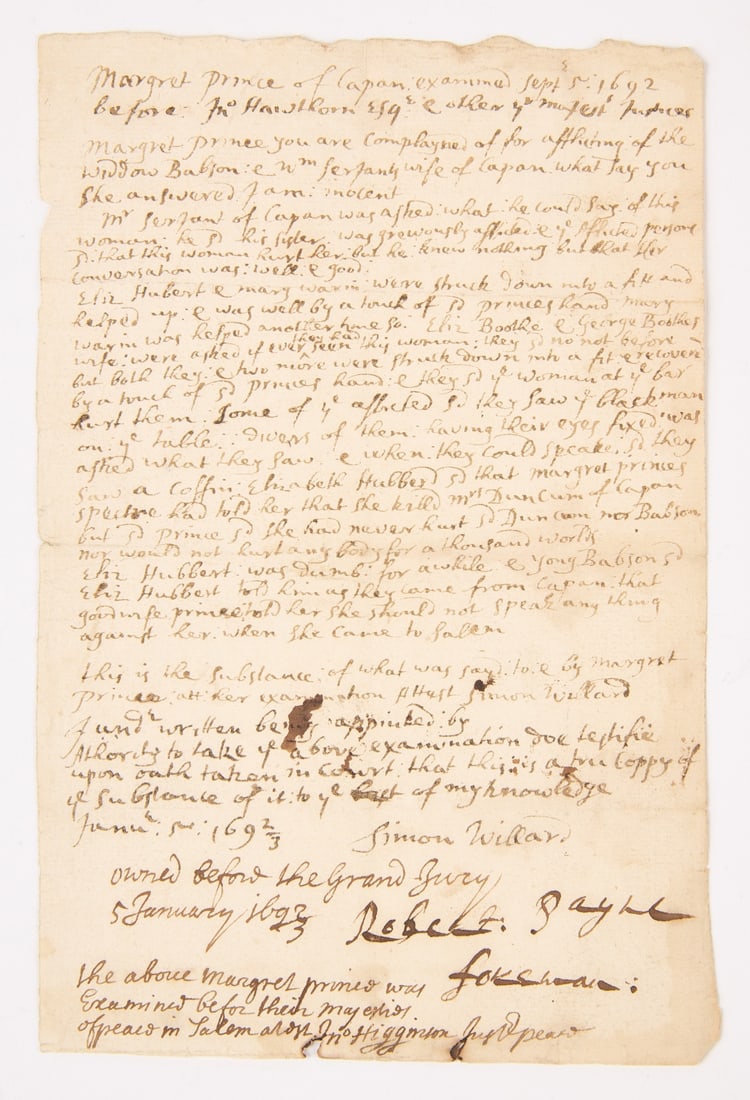 Margret prince of Capan: examined Septr 5: 1692
before: Jno Hawthorn Esqr & other yr majests Justices
Margret prince you are complayned of for afflicting of the
widdow Babson: & wm Serjants wife of Capan: what say you
She answered I am: inocent
Mr Serjant of Capan was asked: what: he could say of this
woman: he sd his sister: was greivously afflicted & ye Afflicted persons
sd: that this woman hurt her: but he: knew nothing but that her
Conversation was: well: & good:
Eliz Hubert & mary warin: were struck down into a fitt and
helped up: & was well by a touch of sd princes hand: mary
warin was helped another time so: Eliz Boothe & George Boothes
wife: were asked if they had ever seen this woman: they sd no not before
but both they: & two more were struck down into a fit & recovered
by a touch of sd princes hand: & they sd ye woman at ye bar
hurt them: Some of ye aflicted sd they saw ye blackman
on: ye table: divers of them: having their eyes fixed: was
asked what they saw & when: they could speake: sd they
saw a Coffin: Elizabeth Hubberd sd that margret princes
spectre had told her that she killd mrs Duncum of Capan
but sd prince sd she had never hurt sd Duncum nor Babson
nor would not hurt any body for a thousand worlds
Eliz Hubbert: was dumb: for awhile & yong Babson sd
Eliz Hubbert told him as they came from Capan: that
goodwife prince told her she should not speak any thing
against her: when she came to Salem
this is the substance: of what was sayd: to: & by margret
prince: att: her examination Attest Simon Willard
I undr written being appointed by
Athority to take ye above: examination doe testifie
upon oath taken in court: that this: is a tru coppy of
ye substance of it: to ye best of my knowledge
Janur: 5: 1692/3 Simon Willard
owned before the Grand Jury
5 January 1692/3 Robert: Payne
foreman:
the above margret prince was
Examined before their majesties
of peace in Salem atest Jno Higginson Just peace